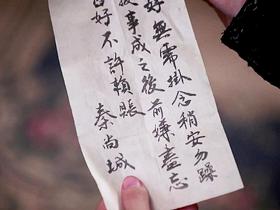 好無需掛念稍安勿躁
事成之後前嫌盡忘
白好不許賴賬
秦尚城